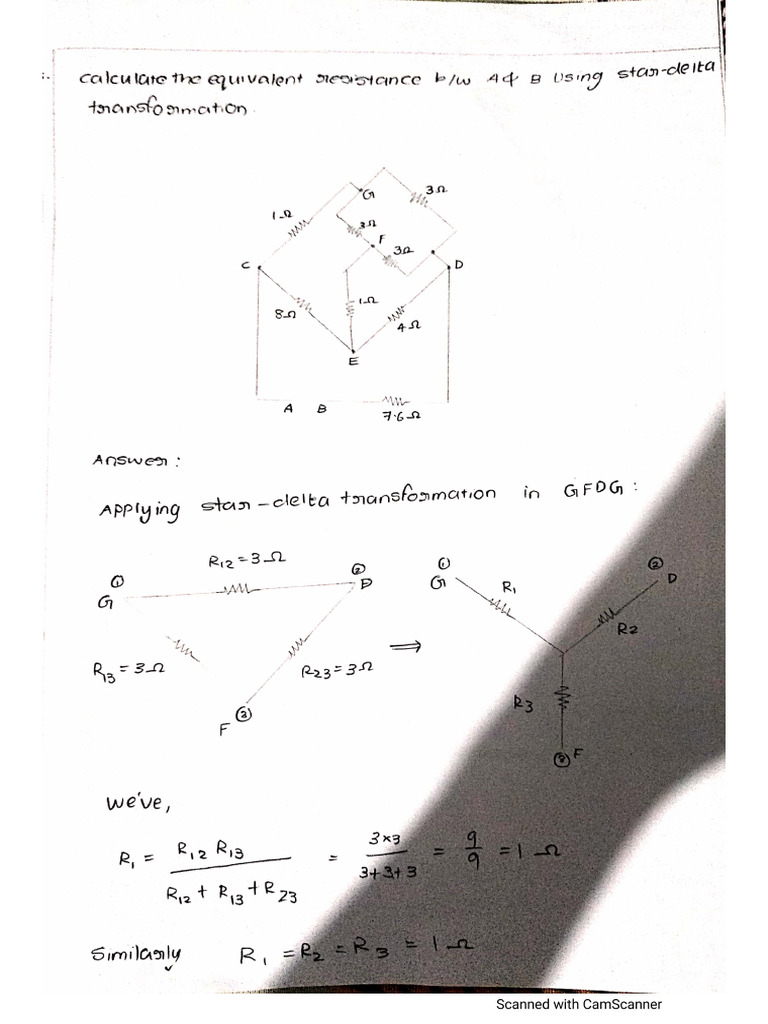 :.
calculate the equivalent resistance b/w A & B Using star-delta
transformation.
G
3Ω
1Ω
3Ω
F
3Ω
C
D
1Ω
8Ω
4Ω
E
A B
7.6Ω
Answer :
Applying star-delta transformation in GFDG :
R12 = 3Ω
① ②
G D
R13 = 3Ω
R23 = 3Ω
③
F
⇒
① ②
G D
R1
R2
R3
③ F
we've,
R1 = R12 R13 / R12 + R13 + R23 = 3×3 / 3+3+3 = 9/9 = 1 Ω
Similarly R1 = R2 = R3 = 1 Ω
Scanned with CamScanner